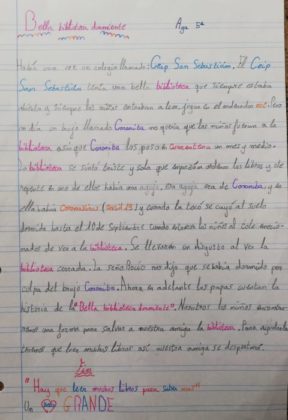 Bella biblioteca durmiente Aya 5ºa
Había una vez un colegio llamado: Ceip San Sebastián. El Ceip
San Sebastián tenía una bella biblioteca que siempre estaba
abierta y siempre los niños entraban a leer, jugar en el ordenador ect. Pero
un día un brujo llamado Coronovirus no quería que los niños fueran a la
biblioteca así que Coronovirus los puso en Cuarentena un mes y medio.
La biblioteca se sintió triste y sola que empezó a ordenar los libros y de
repente en uno de ellos había una aguja, esa aguja era de Coronovirus, y en
ella había Coronavirus (Covid.19) y cuando la tocó se cayó al suelo
dormida hasta el 10 de Septiembre cuando vinieron los niños al cole emocio-
nados de ver a la biblioteca. Se llevaron un disgusto al ver la
biblioteca cerrada. La seño Rocío nos dijo que se había dormido por
culpa del brujo Coronovirus. Ahora en adelante los papas cuentan la
historia de la "Bella biblioteca durmiente". Nosotros los niños encontra-
remos una forma para salvar a nuestra amiga la biblioteca. Para ayudarla
tenemos que leer muchos libros así nuestra amiga se despertará.
Fin
"Hay que leer muchos libros para saber mas!!"
Un GRANDE